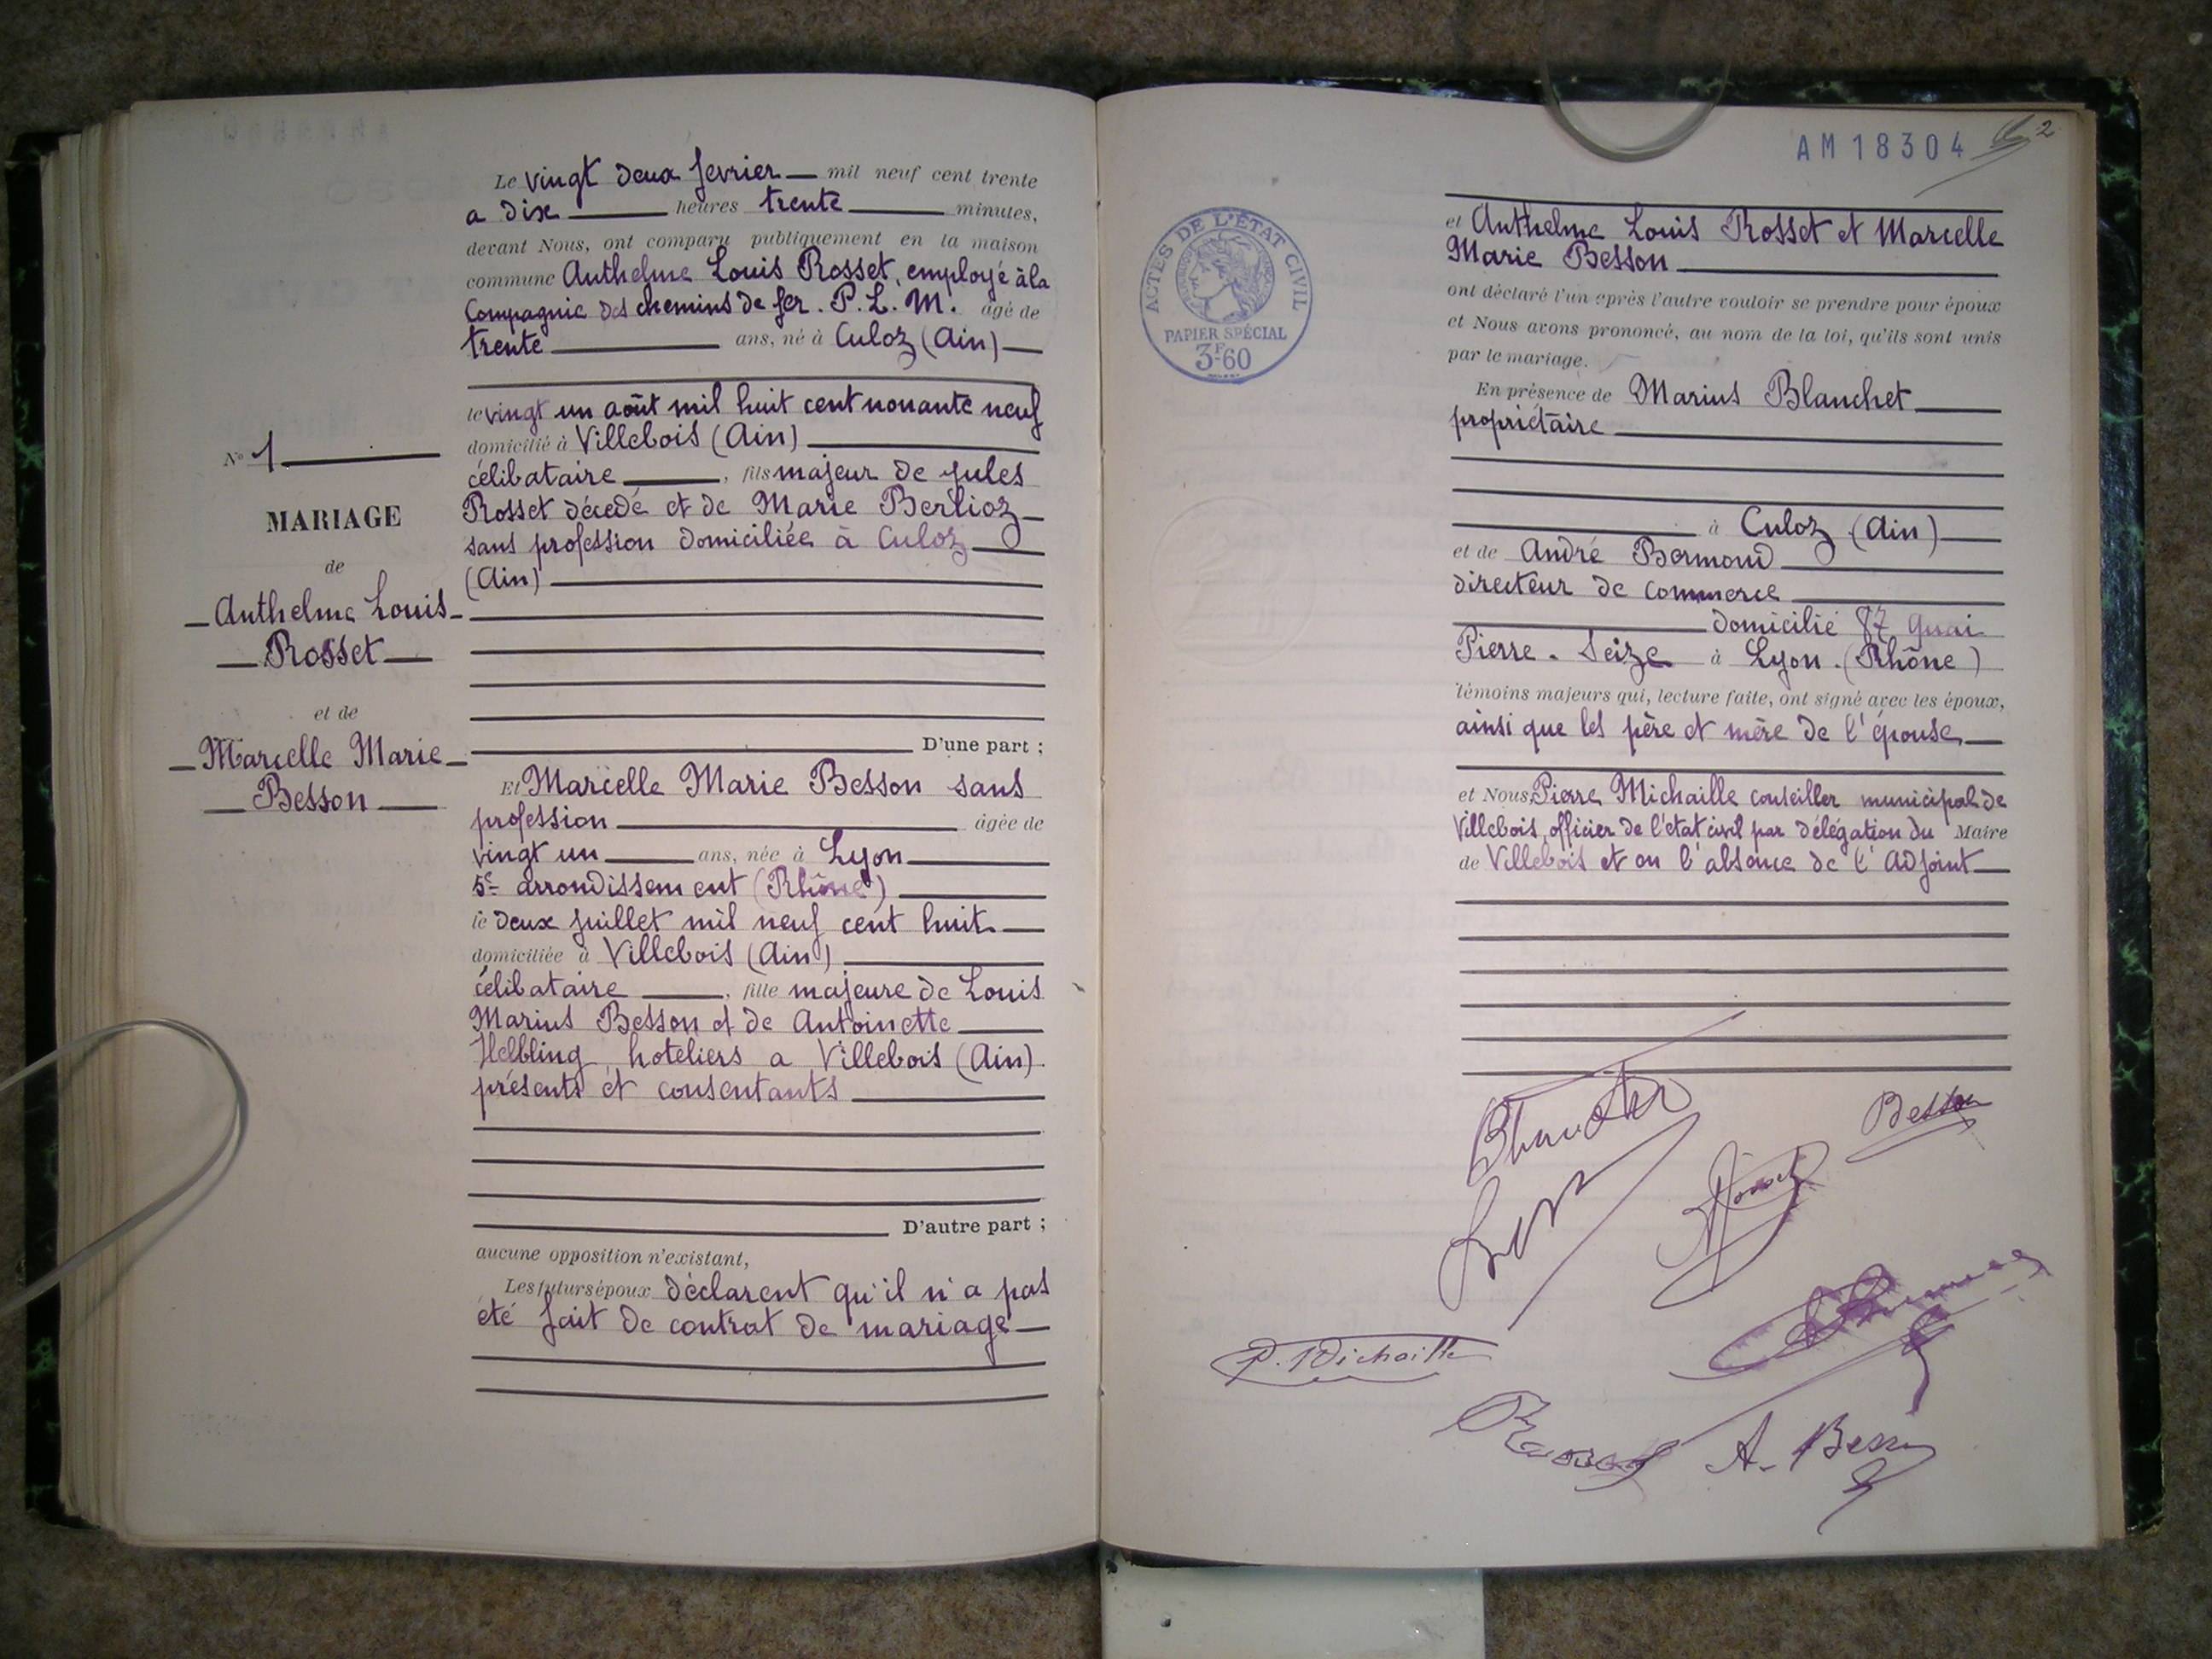 Le vingt deux fevrier mil neuf cent trente
a dix heures trente minutes,
devant Nous, ont comparu publiquement en la maison
commune Anthelme Louis Rosset, employé à la
Compagnie des chemins de fer. P. L. M. âgé de
trente ans, né à Culoz (Ain)
le vingt un août mil huit cent nonante neuf
domicilié à Villebois (Ain)
célibataire, fils majeur de jules
Rosset décedé et de Marie Berlioz
sans profession domiciliée à Culoz
(Ain)
D'une part ;
N° 1
MARIAGE
de
Anthelme Louis
Rosset
et de
Marcelle Marie
Besson
Et Marcelle Marie Besson sans
profession âgée de
vingt un ans, née à Lyon
5e arrondissement (Rhône)
le deux juillet mil neuf cent huit
domiciliée à Villebois (Ain)
célibataire, fille majeure de Louis
Marius Besson et de Antoinette
Helbling hoteliers a Villebois (Ain)
présents et consentants
D'autre part ;
aucune opposition n'existant,
Les futurs époux déclarent qu'il n'a pas
été fait de contrat de mariage
AM18304
2
ACTES DE L'ÉTAT CIVIL
PAPIER SPÉCIAL
3F60
et Anthelme Louis Rosset et Marcelle
Marie Besson
ont déclaré l'un après l'autre vouloir se prendre pour époux
et Nous avons prononcé, au nom de la loi, qu'ils sont unis
par le mariage.
En présence de Marius Blanchet
propriétaire
à Culoz (Ain)
et de André Bermond
directeur de commerce
domicilié 87 quai
Pierre-Seize à Lyon. (Rhône)
témoins majeurs qui, lecture faite, ont signé avec les époux,
ainsi que les père et mère de l'épouse
et Nous, Pierre Michaille conseiller municipal de
Villebois, officier de l'état civil par délégation du Maire
de Villebois et en l'absence de l'Adjoint
Besson
Rosset
P. Michaille